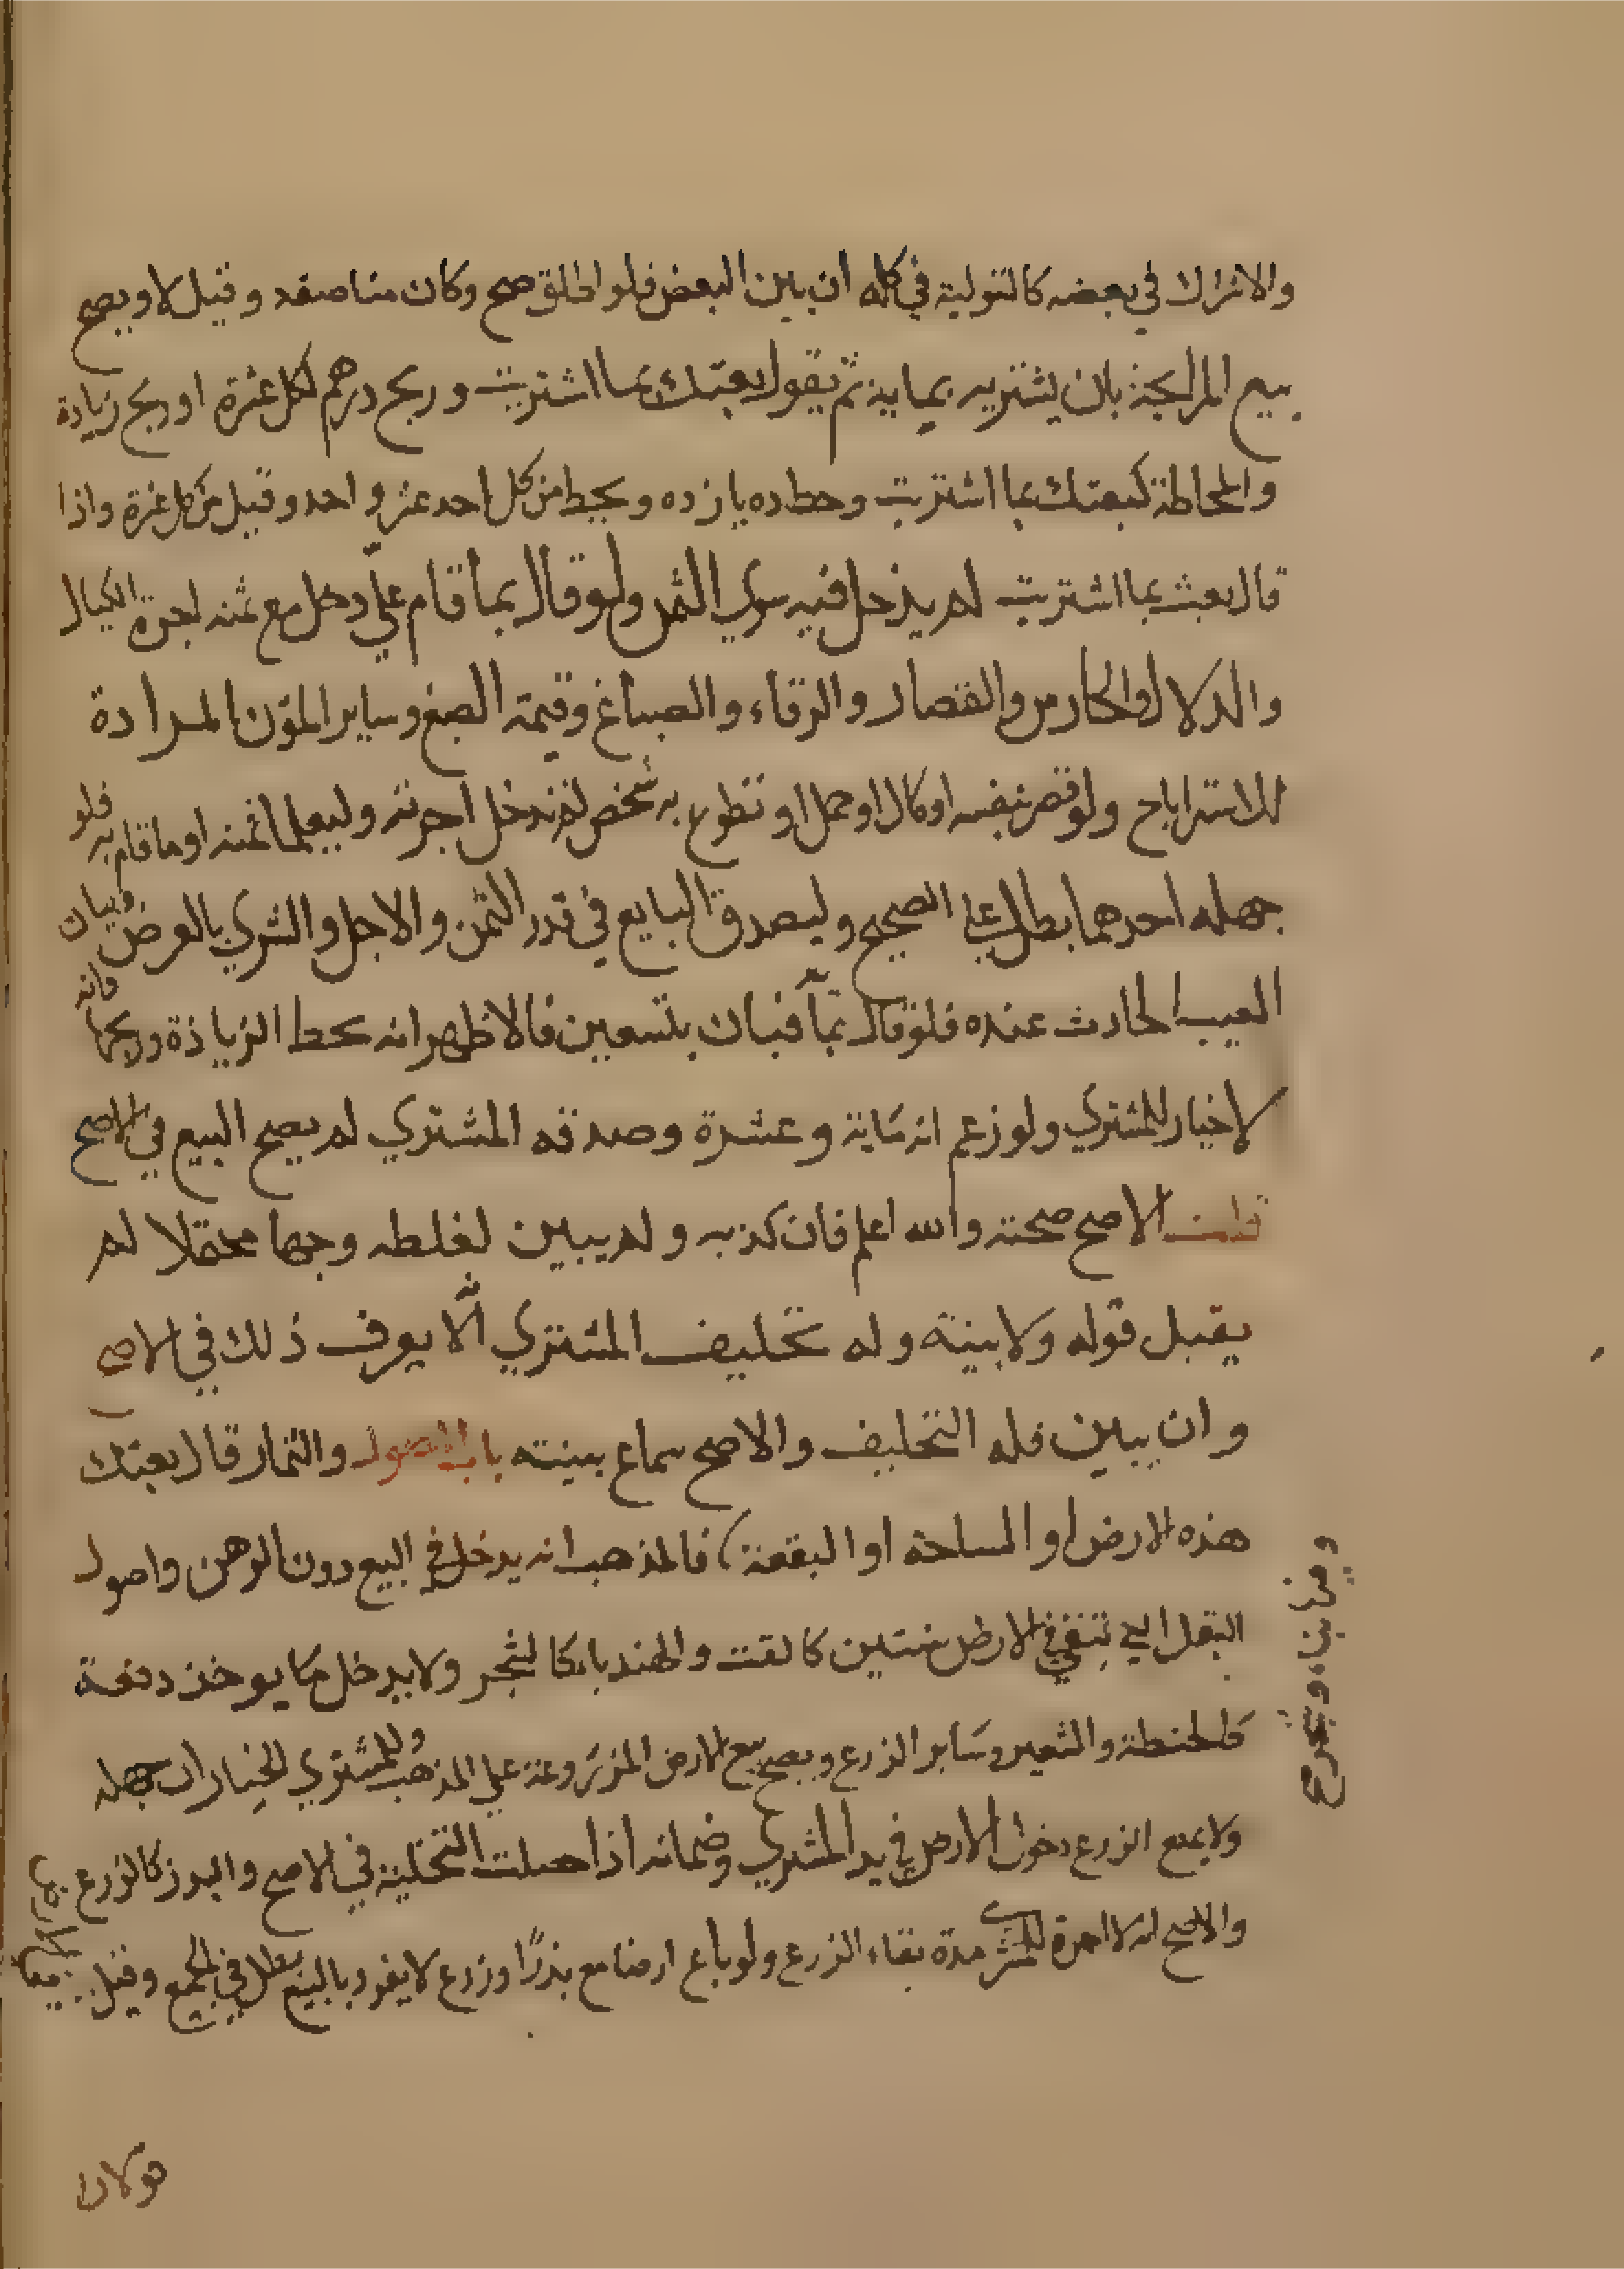 والاشراك في بعضه كالتولية في كله ان بين البعض فلو اطلق صح وكان مناصفه وقيل لا ويصح
بيع المرابحة بان يشتريه بماية ثم يقول بعتك بما اشتريت وربح درهم لكل عشرة او ربح زيادة
والمحاطة كبعتك بما اشتريت وحط ده يازده ويحط من كل احد عشر واحد وقيل من كل عشرة واذا
قال بعت بما اشتريت لم يدخل فيه سوي الثمن ولو قال بما قام علي دخل مع ثمنه اجرة الكيال
والدلال والحارس والقصار والرفاء والصباغ وقيمة الصبغ وساير المؤن المرادة
للاسترباح ولو قصر بنفسه او كال او حمل او تطوع به شخص لم تدخل اجرته وليعلما ثمنه او ما قام به فلو
جهله احدهما بطل علي الصحيح وليصدق البايع في قدر الثمن والاجل والشري بالعرض وبيان
العيب الحادث عنده فلو قال بمأة فبان بتسعين فالاظهر انه يحط الزيادة وربحها وانه
لا خيار للمشتري ولو زعم انه ماية وعشرة وصدقه المشتري لم يصح البيع في الاصح
قلت الاصح صحته والله اعلم فان كذبه ولم يبين لغلطه وجها محتملا لم
يقبل قوله ولا بينته وله تحليف المشتري انه لا يعرف ذلك في الاصح
وان بين فله التحليف والاصح سماع بينته باب الاصول والثمار قال بعتك
هذه الارض او الساحة او البقعة فالمذهب انه يدخل في البيع دون الرهن واصول
البقل التي تبقي في الارض سنتين كالقت والهندباء كالشجر ولا يدخل ما يوخذ دفعة
كالحنطة والشعير وساير الزرع ويصح بيع الارض المزروعة علي المذهب وللمشتري الخيار ان جهله
ولا يمنع الزرع دخول الارض في يد المشتري وضمانه اذا حصلت التخلية في الاصح والبذر كالزرع
والاصح انه لا اجرة للمشتري مدة بقاء الزرع ولو باع ارضا مع بذر او زرع لا يفرد بالبيع بطل في الجميع وقيل